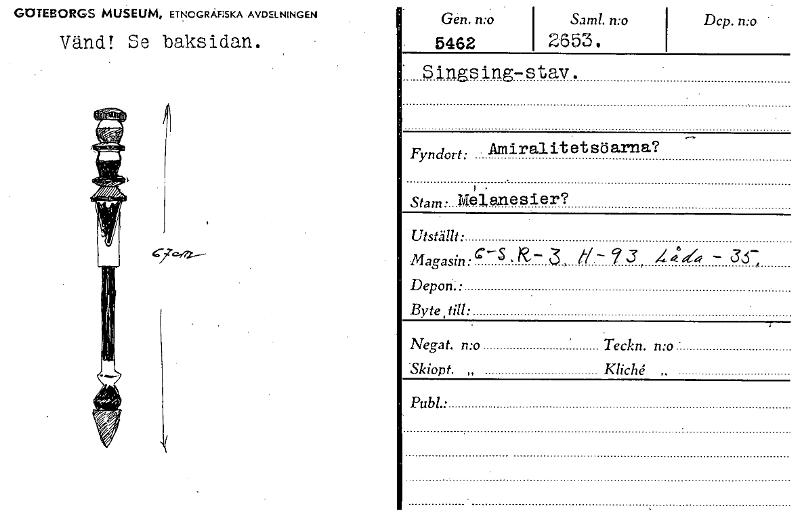 GÖTEBORGS MUSEUM, ETNOGRAFISKA AVDELNINGEN
Vänd! Se baksidan.
67cm
Gen. n:o Saml. n:o Dep. n:o
5462 2653.
Singsing-stav.
Fyndort: Amiralitetsöarna?
Stam: Melanesier?
Utställt:
Magasin: G-S. R-3, H-93, Låda-35.
Depon.:
Byte till:
Negat. n:o Teckn. n:o
Skiopt. „ Kliché „
Publ.: